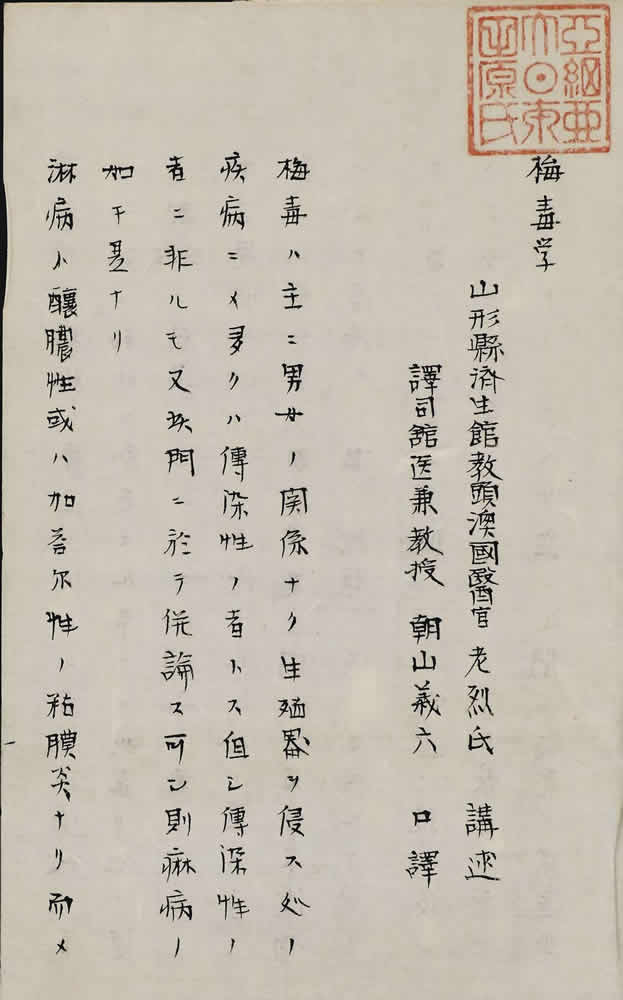 亞細亜
大日本
原氏
梅毒学
山形縣済生館教頭澳國醫官 老烈氏 講述
譯司舘医兼教授 朝山義六 口譯
梅毒ハ主ニ男女ノ関係ナク生殖器ヲ侵ス処ノ
疾病ニメ多クハ傳染性ノ者トス但シ傳染性ノ
者ニ非ルモ又此門ニ於テ併論ス可シ則痳病ノ
如キ是ナリ
淋病ハ醸膿性或ハ加荅尔性ノ粘膜炎ナリ而メ